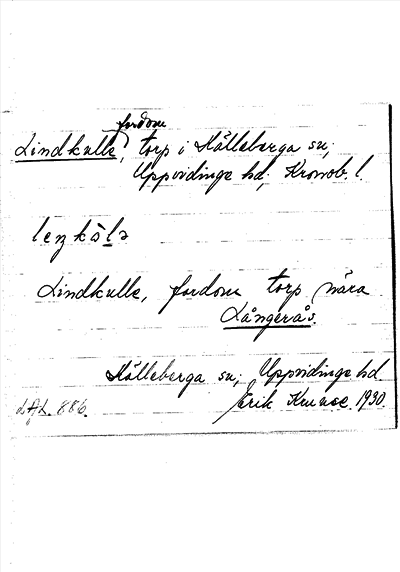 fordom
Lindkulle, torp i Hälleberga sn,
Uppvidinge hd, Kronob. l.
Lindkulle, fordom torp nära
Långerås.
Hälleberga sn, Uppvidinge hd.
Erik Kruuse 1930.
LAL. 886.